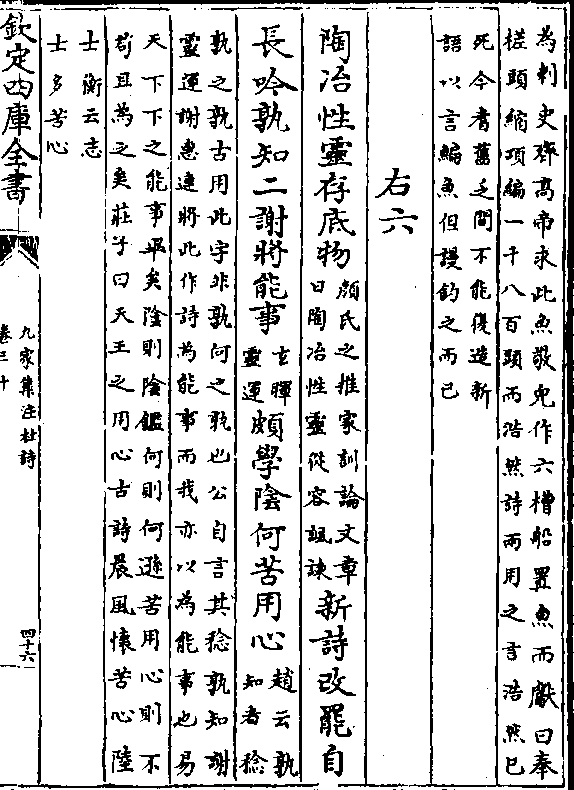 為刺史齊高帝求此魚敬兒作六櫓船置魚而獻曰奉
槎頭縮項編一千八百頭而浩然詩兩用之言浩然已
死今耆舊之間不能復造新
語以言編魚但謾釣之而已
右六
陶冶性靈存底物
顔氏之推家訓論文章
曰陶冶性靈從容諷諫
新詩改罷自
長吟孰知二謝將能事
玄暉
靈運
頗學陰何苦用心
趙云孰
知者稔
孰之孰古用此字非孰何之孰也公自言其稔孰知謝
靈運謝惠連將此作詩為能事而我亦以為能事也易
天下下之能事畢矣陰則陰鏗何則何遜苦用心則不
苟且為之矣莊子曰天王之用心古詩晨風懷苦心陸
士衡云志
士多苦心
欽定四庫全書
九家集注杜詩
卷三十
四十六